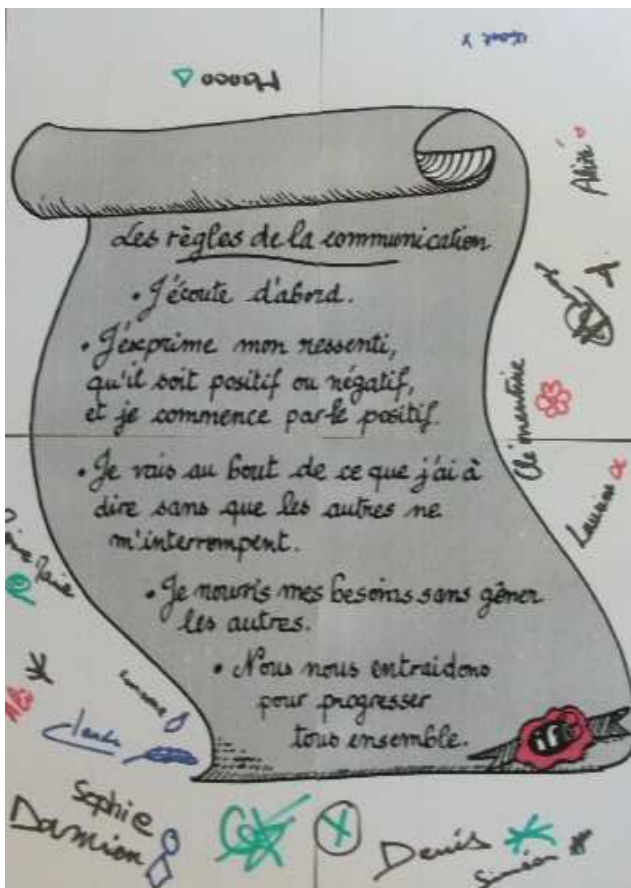 Alizé
Les règles de la communication
• J'écoute d'abord.
• J'exprime mon ressenti,
qu'il soit positif ou négatif,
et je commence par le positif.
Clémentine
• Je vais au bout de ce que j'ai à
dire sans que les autres ne
m'interrompent.
• Je nourris mes besoins sans gêner
les autres.
• Nous nous entraidons
pour progresser
tous ensemble.
Claude
Sophie
Damien
Denis
Siméon